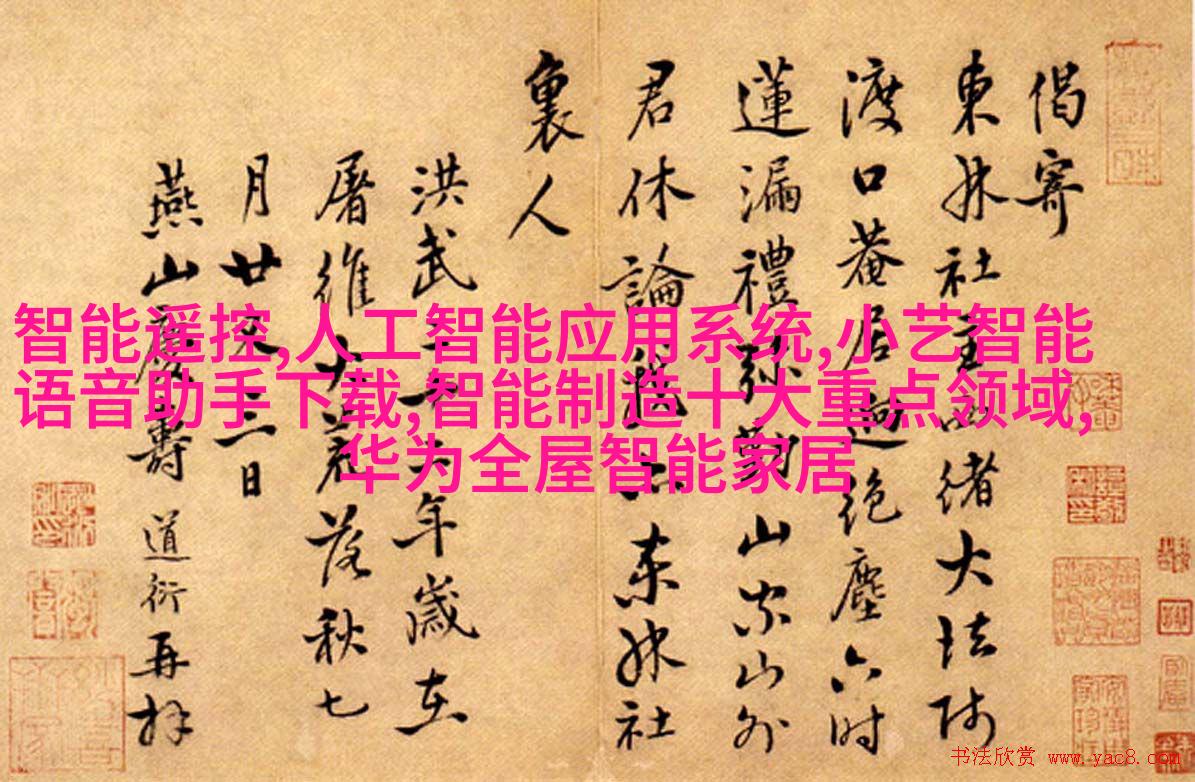 偈寄
東林社主四緒大法師
渡口菴居迥絶塵六時
蓮漏禮弥勤山宗山外
君休論我亦東林社
裏人
洪武二十二年歲在
屠維大荒落秋七
月廿又三日
燕山慶壽道衍再拜
智能遥控,人工智能应用系统,小艺智能
语音助手下载,智能制造十大重点领域,
华为全屋智能家居
书法欣赏 www.yac8.com